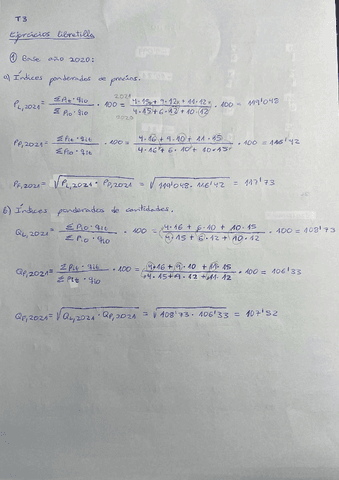 T3
Ejercicios libretilla
① Base año 2020:
a) Índices ponderados de precios.
PL,2021 = ΣPit·qio / ΣPio·qio · 100 = 4·15+9·12+11·12 / 4·15+6·12+10·12 · 100 = 119'048
PP,2021 = ΣPit·qit / ΣPio·qit · 100 = 4·16+9·10+11·15 / 4·16+6·10+10·15 · 100 = 116'42
PF,2021 = √PL,2021 · PP,2021 = √119'048 · 116'42 = 117'73
b) Índices ponderados de cantidades.
QL,2021 = ΣPio·qit / ΣPio·qio · 100 = 4·16+6·10+10·15 / 4·15+6·12+10·12 · 100 = 108'73
QP,2021 = ΣPit·qit / ΣPit·qio · 100 = 4·16+9·10+11·15 / 4·15+9·12+11·12 · 100 = 106'33
QF,2021 = √QL,2021 · QP,2021 = √108'73 · 106'33 = 107'52